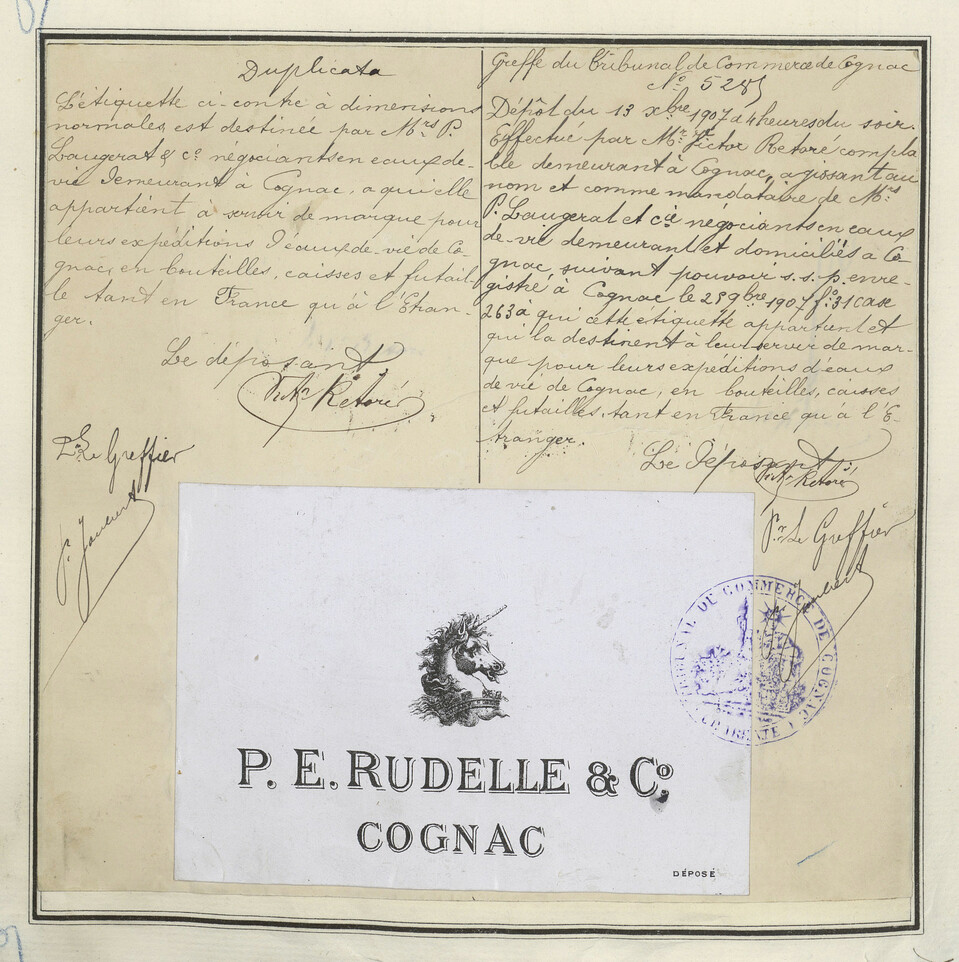 Duplicata
L'étiquette ci-contre à dimensions
normales, est destinée par Mrs P.
Laugerat & Co négociants en eaux-de-
vie demeurant à Cognac, a qui elle
appartient à servir de marque pour
leurs expéditions d'eaux-de-vie de Co-
gnac, en bouteilles, caisses et futail-
le tant en France qu'à l'Etran-
ger.
Le déposant
Vtor Rétoré
Pr Le Greffier
Greffe du Tribunal de Commerce de Cognac
No 5285
Dépôt du 13 xbre 1907 à 4 heures du soir.
Effectué par Mr Victor Retoré compta
ble demeurant à Cognac, agissant au
nom et comme mandataire de Mrs
P. Laugerat et Cie négociants en eaux
de-vie demeurant et domiciliés à Co
gnac, suivant pouvoir s.s.p. enre-
gistré à Cognac le 25 9bre 1907 fo 31 case
263 à qui cette étiquette appartient et
qui la destinent à leur servir de mar-
que pour leurs expéditions d'eaux
de vie de Cognac, en bouteilles, caisses
et futailles, tant en France qu'à l'E-
tranger.
Le Déposant
Vtor Retoré
Pr Le Greffier
TRIBUNAL DE COMMERCE DE COGNAC
CHARENTE
P. E. RUDELLE & Co.
COGNAC
DÉPOSÉ